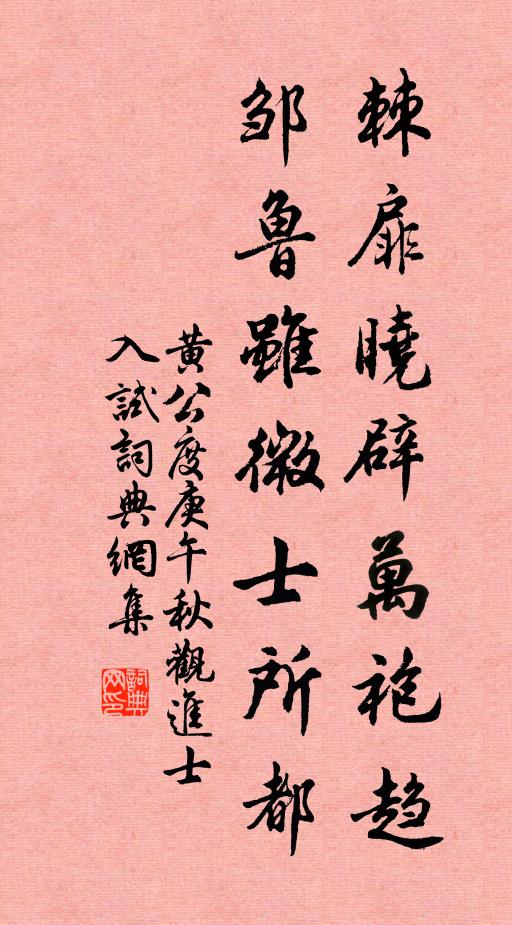 棘扉曉辟萬袍趋
邹魯雖微士所都
黄公度庚午秋觀進士
入試詞典網集
詞典网印